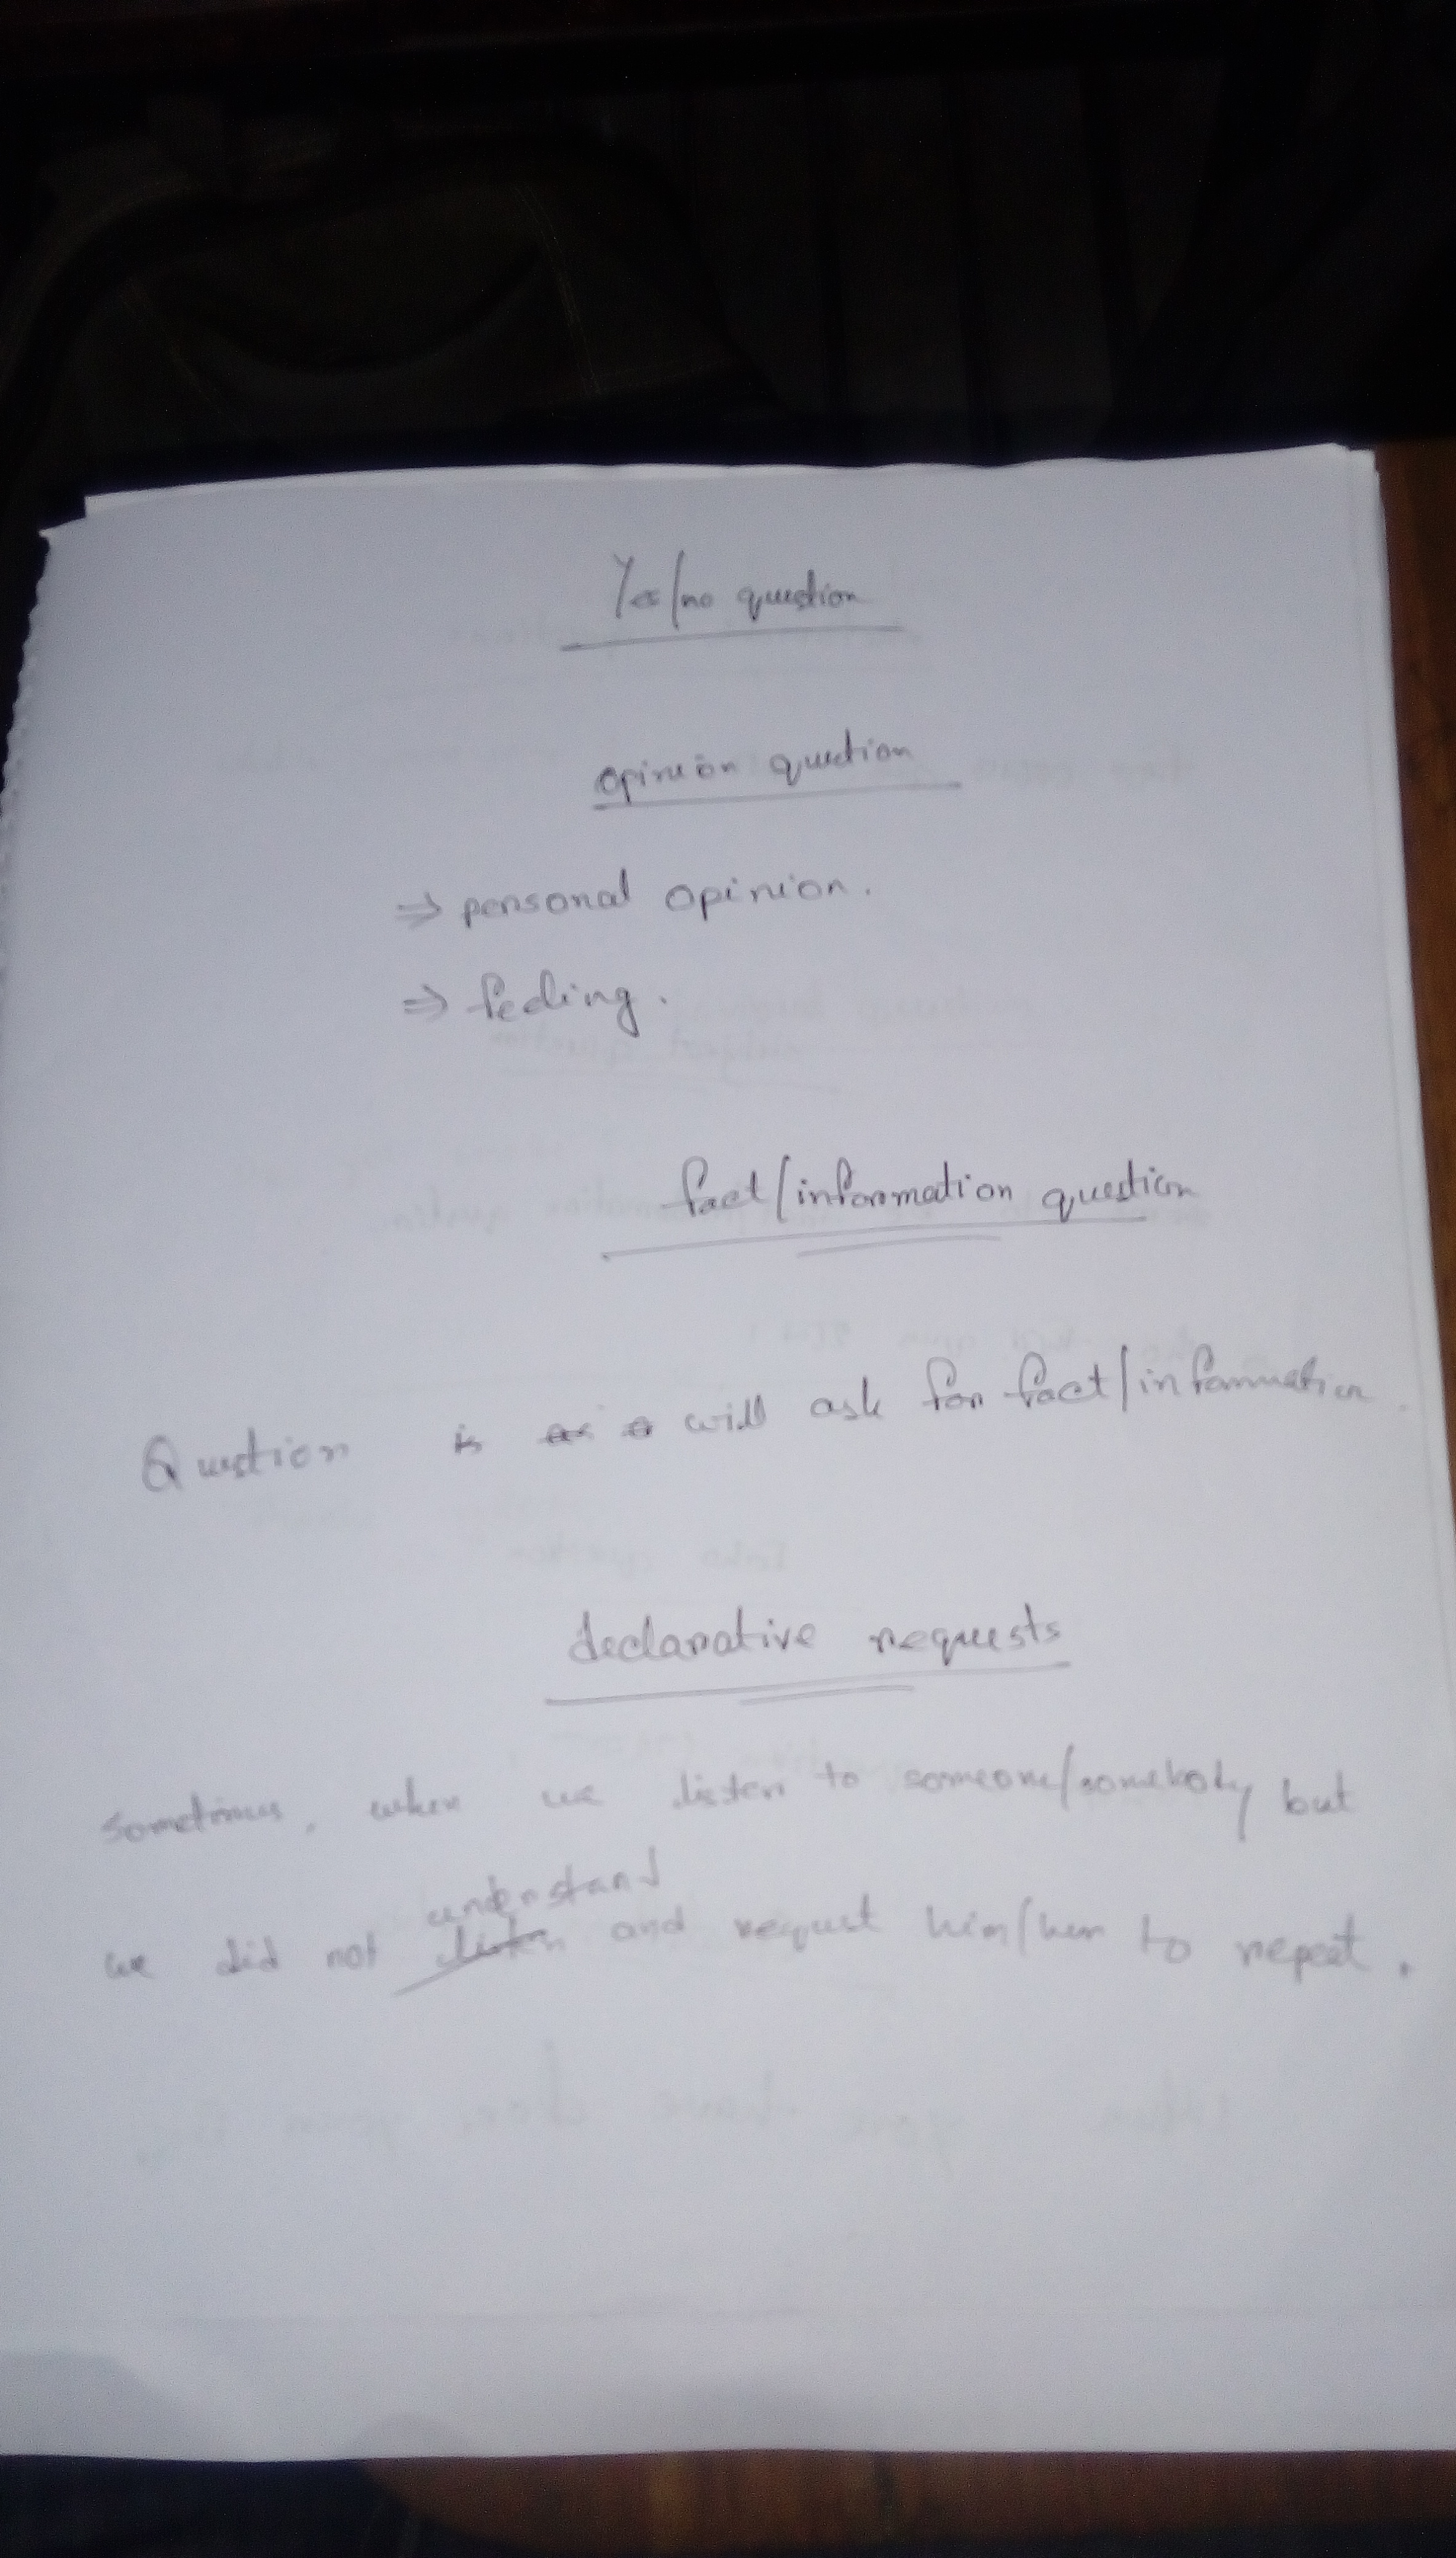 Yes/no question
opinion question
⇒ personal opinion.
⇒ feeling.
fact/information question
Question is will ask for fact/information.
declarative requests
sometimes, when we listen to someone/somebody but
understand
we did not listen and request him/her to repeat.